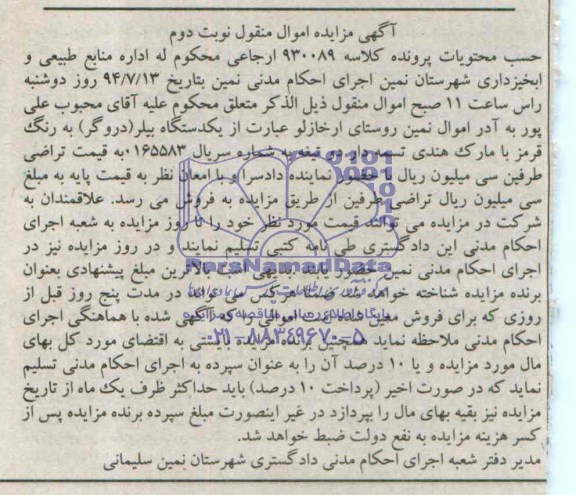 آگهی مزایده اموال منقول نوبت دوم
حسب محتویات پرونده کلاسه ۹۳۰۰۸۹ ارجاعی محکوم له اداره منابع طبیعی و
ابخیزداری شهرستان نمین اجرای احکام مدنی نمین بتاریخ ۹۴/۷/۱۳ روز دوشنبه
راس ساعت ۱۱ صبح اموال منقول ذیل الذکر متعلق محکوم علیه آقای محبوب علی
پور به آدر اموال نمین روستای ارخازلو عبارت از یکدستگاه بیلر(دروگر) به رنگ
قرمز با مارک هندی تسمه دار دو تیغه به شماره سریال ۰۱۶۵۵۸۳ به قیمت تراضی
طرفین سی میلیون ریال با حضور نماینده دادسرا و با امعان نظر به قیمت پایه به مبلغ
سی میلیون ریال تراضی طرفین از طریق مزایده به فروش می رسد. علاقمندان به
شرکت در مزایده می توانند قیمت مورد نظر خود را تا روز مزایده به شعبه اجرای
احکام مدنی این دادگستری طی نامه کتبی تسلیم نمایند و در روز مزایده نیز در
اجرای احکام مدنی نمین حضور یابند. بدیهی است بالاترین مبلغ پیشنهادی بعنوان
برنده مزایده شناخته خواهد شد ضمنا هر کس می تواند در مدت پنج روز قبل از
روزی که برای فروش معین شده است اموالی را که آگهی شده با هماهنگی اجرای
احکام مدنی ملاحظه نماید همچنین برنده مزایده بایستی به اقتضای مورد کل بهای
مال مورد مزایده و یا ۱۰ درصد آن را به عنوان سپرده به اجرای احکام مدنی تسلیم
نماید که در صورت اخیر (پرداخت ۱۰ درصد) باید حداکثر ظرف یک ماه از تاریخ
مزایده نیز بقیه بهای مال را بپردازد در غیر اینصورت مبلغ سپرده برنده مزایده پس از
کسر هزینه مزایده به نفع دولت ضبط خواهد شد.
مدیر دفتر شعبه اجرای احکام مدنی دادگستری شهرستان نمین سلیمانی
ParsNamadData
پایگاه اطلاع رسانی مناقصه و مزایده
۰۲۱-۸۸۳۴۹۶۷۰-۵